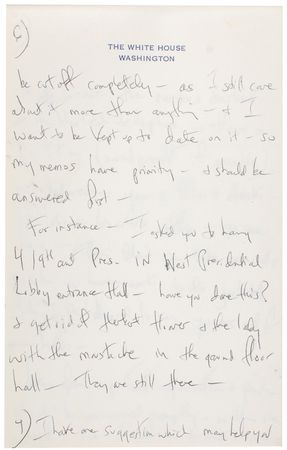 6)
THE WHITE HOUSE
WASHINGTON
be cut off completely – as I still care
about it more than anything – & I
want to be kept up to date on it – so
my memos have priority – & should be
answered first –
For instance – I asked you to hang
4 19th cent Pres. in West Presidential
Lobby entrance Hall – have you done this?
& get rid of Herbert Hoover & the lady
with the mustache in the ground floor
hall – They are still there –
7) I have one suggestion which may help you